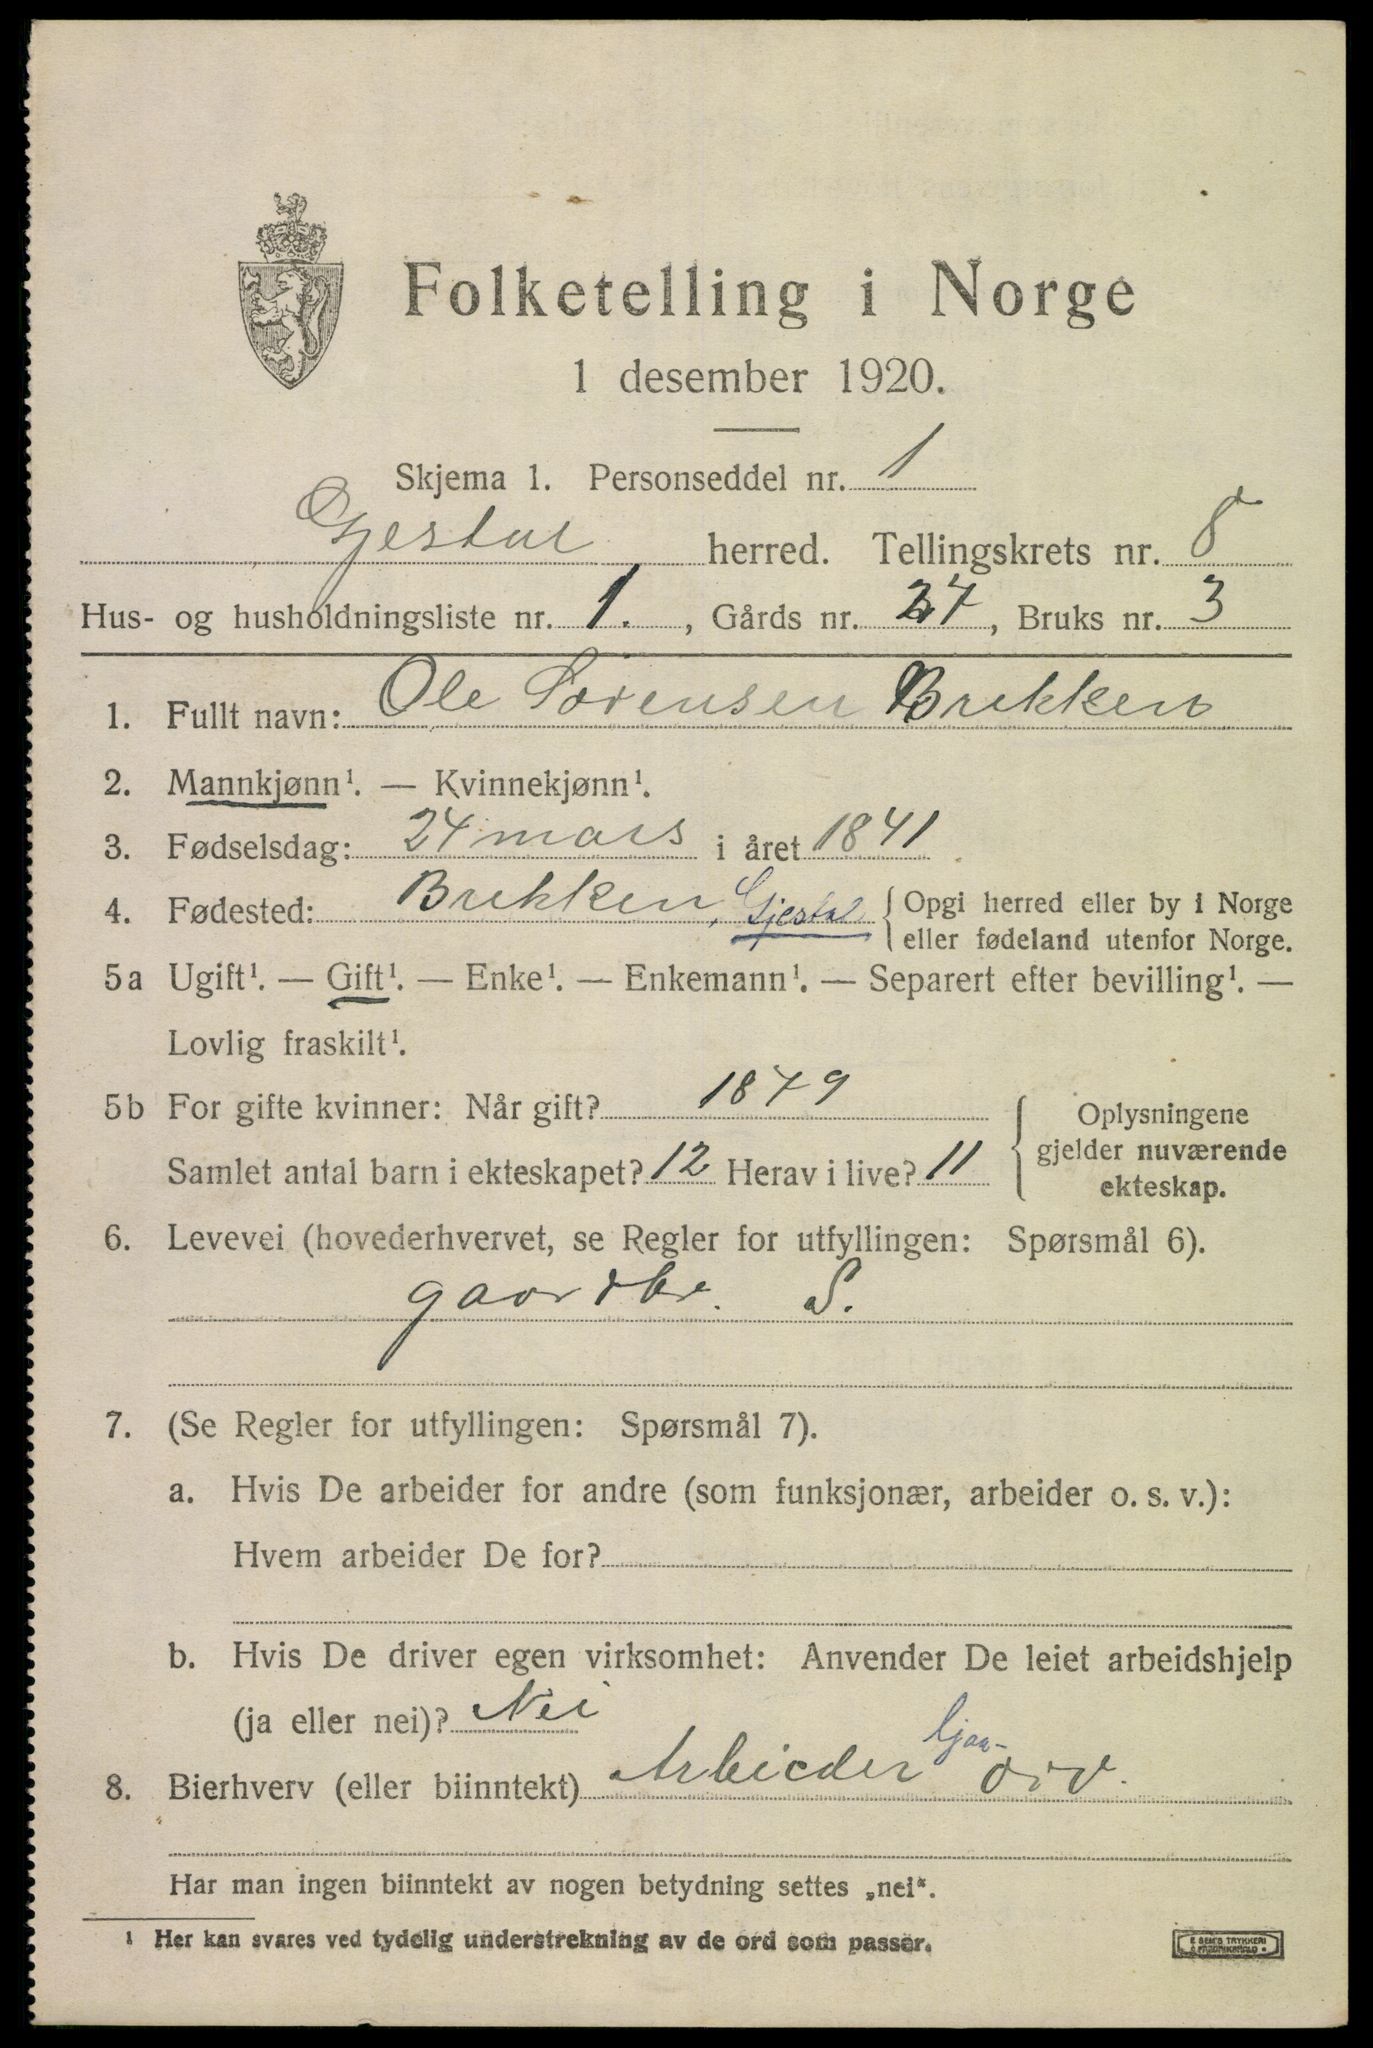 Folketelling i Norge
1 desember 1920.
Skjema 1. Personseddel nr. 1
Gjestal herred. Tellingskrets nr. 8
Hus- og husholdningsliste nr. 1. , Gårds nr. 27, Bruks nr. 3
1. Fullt navn: Ole Sørensen Brekken
2. Mannkjønn¹. — Kvinnekjønn¹.
3. Fødselsdag: 24 mars i året 1841
4. Fødested: Brekken, Gjestal { Opgi herred eller by i Norge
eller fødeland utenfor Norge.
5a Ugift¹. — Gift¹. — Enke¹. — Enkemann¹. — Separert efter bevilling¹. —
Lovlig fraskilt¹.
5b For gifte kvinner: Når gift? 1879
Samlet antal barn i ekteskapet? 12 Herav i live? 11
Oplysningene
gjelder nuværende
ekteskap.
6. Levevei (hovederhvervet, se Regler for utfyllingen: Spørsmål 6).
gaardbr. S.
7. (Se Regler for utfyllingen: Spørsmål 7).
a. Hvis De arbeider for andre (som funksjonær, arbeider o. s. v.):
Hvem arbeider De for?
b. Hvis De driver egen virksomhet: Anvender De leiet arbeidshjelp
(ja eller nei)? Nei
8. Bierhverv (eller biinntekt) Arbieder
Har man ingen biinntekt av nogen betydning settes „nei“.
¹ Her kan svares ved tydelig understrekning av de ord som passer.
E SEM'S TRYKKERI
FREDRIKSHALD